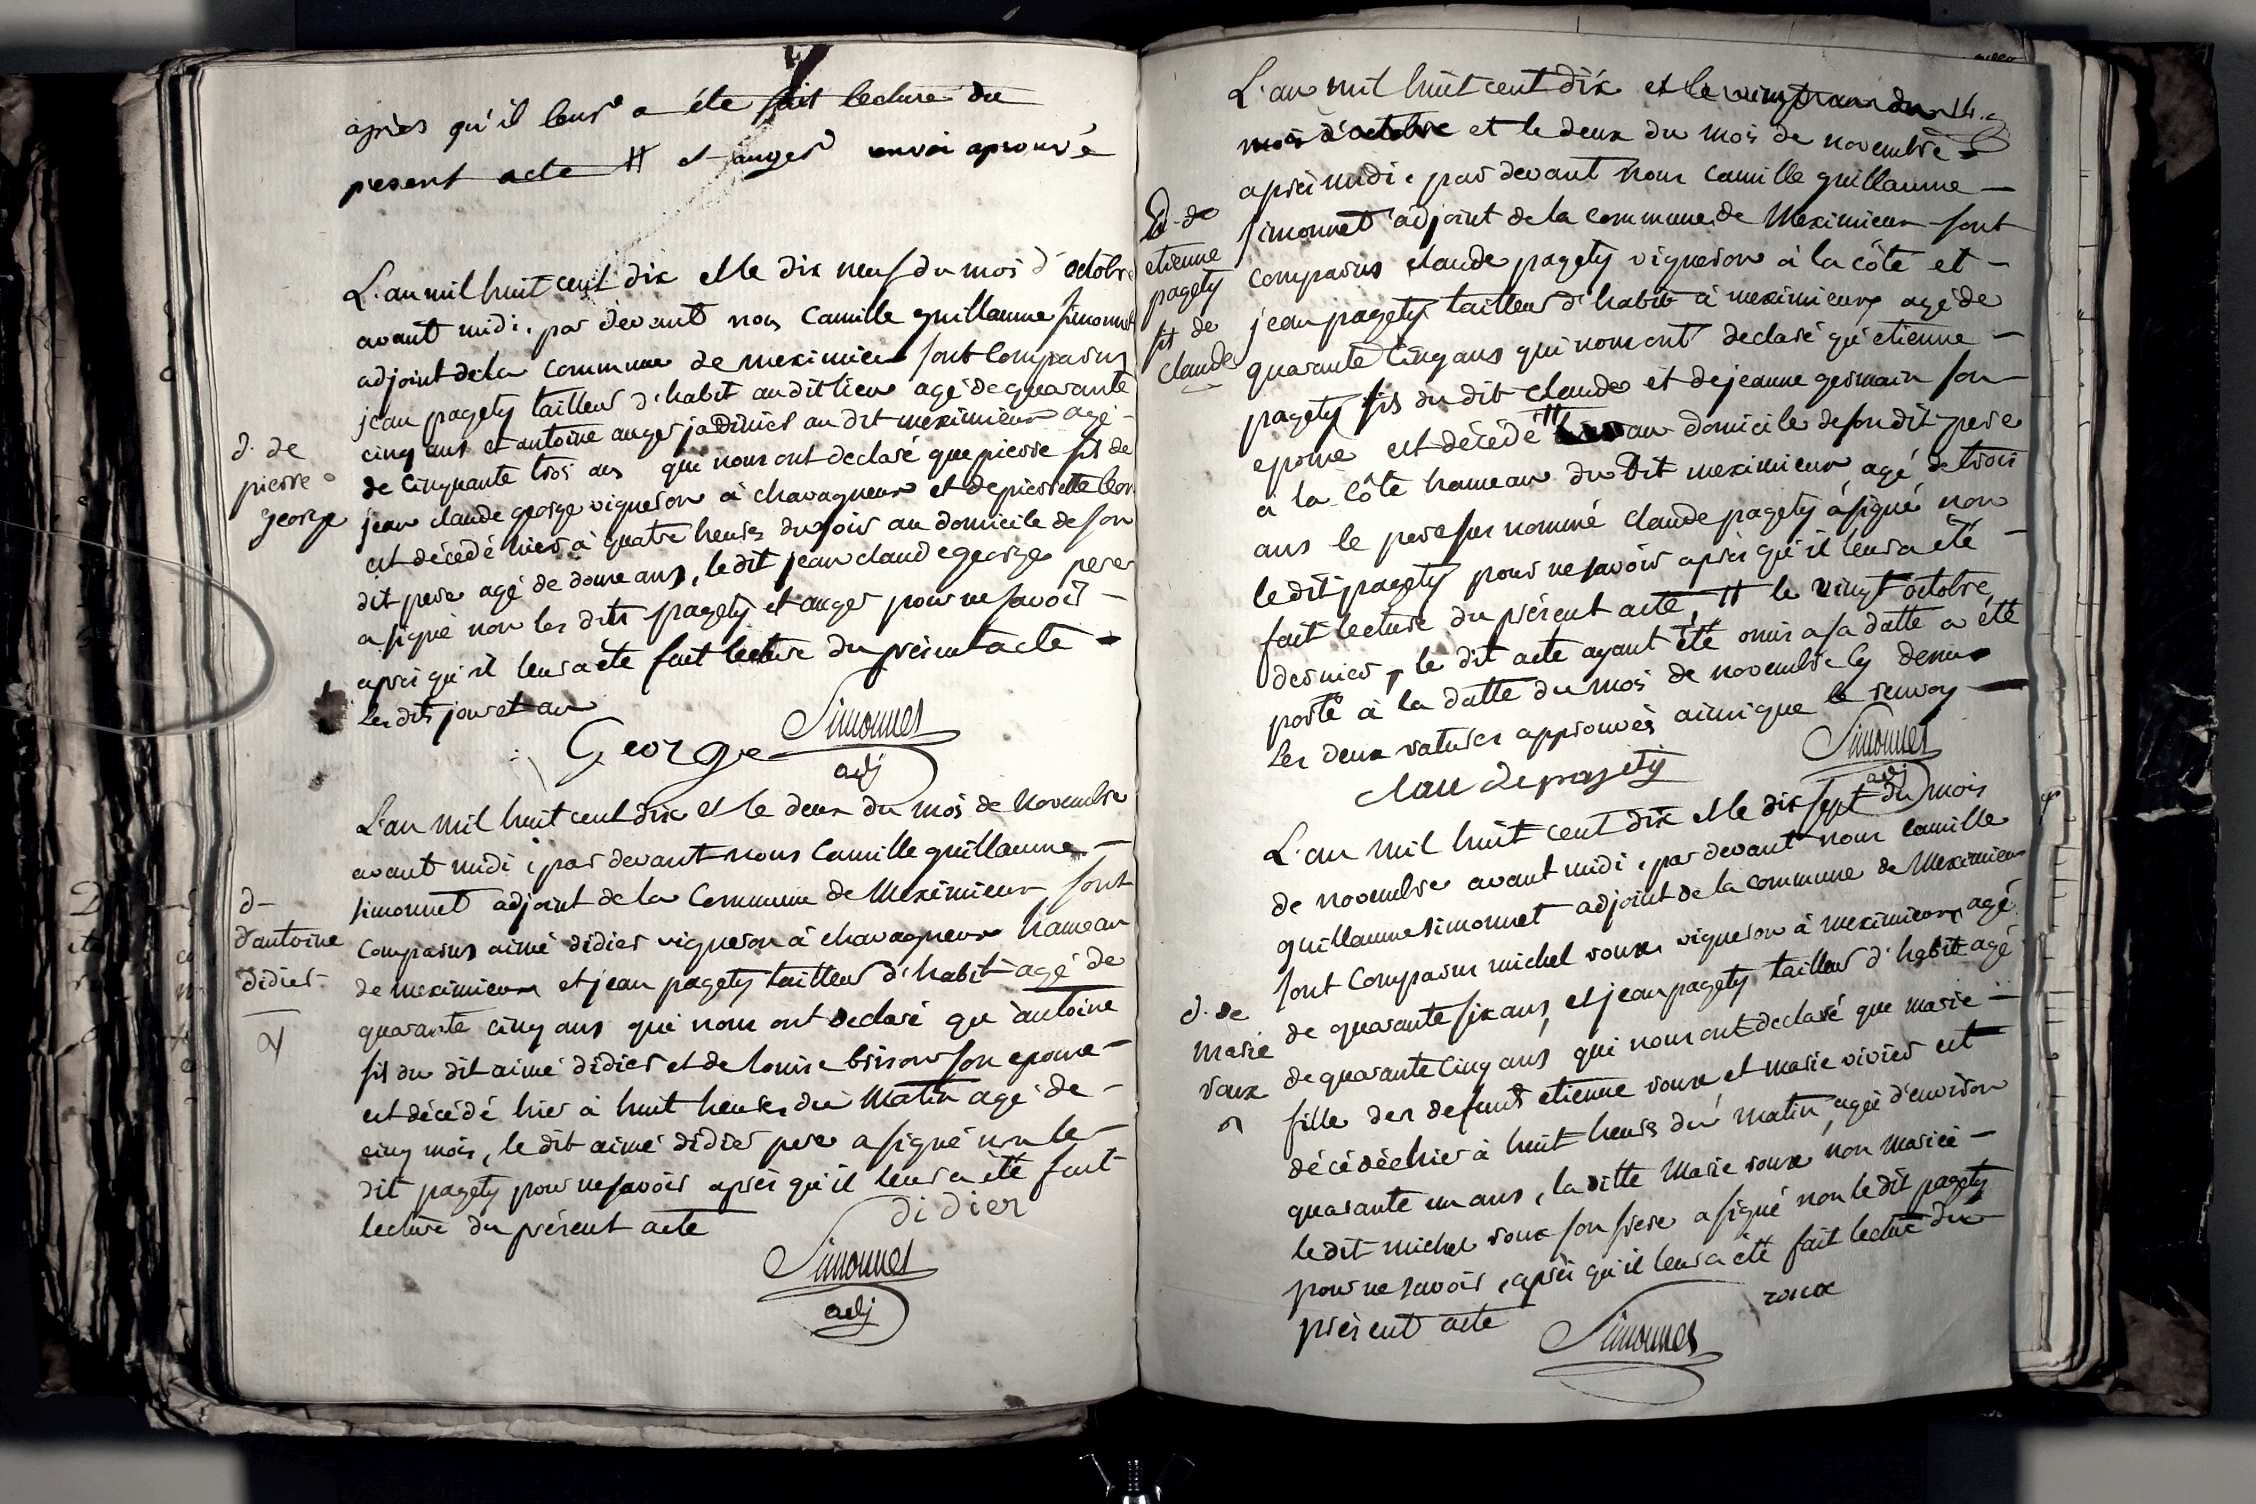 après qu'il leur a été fait lecture du
present acte # et auger envoi aprouvé
L'an mil huit cent dix et le dix neuf du mois d'octobre
avant midi, par devant nous Camille guillaume Simonnet
adjoint de la commune de meximieux sont comparus
jean pagety tailleur d'habit au dit lieu agé de quarante
cinq ans et antoine auger jardinier au dit meximieux agé
de cinquante trois ans qui nous ont declaré que pierre fils de
jean claude george vigneron à chavagneux et de pierrette
est décédé hier à quatre heures du soir au domicile de son
dit pere agé de douze ans, le dit jean claude george pere
a signé non les dits pagety et auger pour ne savoir
après qu'il leur a été fait lecture du présent acte
les dits jour et an
d. de
pierre
george
George Simonnet
adj
L'an mil huit cent dix et le deux du mois de Novembre
avant midi, par devant nous Camille guillaume
simonnet adjoint de la Commune de Meximieux sont
comparus aimé didier vigneron à chavagneux hameau
de meximieux et jean pagety tailleur d'habit agé de
quarante cinq ans qui nous ont declaré qu'antoine
fils du dit aimé didier et de louise brison son epouse
est décédé hier à huit heures du Matin agé de
cinq mois, le dit aimé didier pere a signé non le
dit pagety pour ne savoir après qu'il leur a été fait
lecture du présent acte
d-
d'antoine
didier
didier
Simonnet
adj
L'an mil huit cent dix et le
mois d'octobre et le deux du mois de novembre
après midi, par devant nous Camille guillaume
simonnet adjoint de la commune de Meximieux sont
comparus claude pagety vigneron à la côte et
jean pagety tailleur d'habit à meximieux agé de
quarante cinq ans qui nous ont declaré qu'etienne
pagety fils du dit claude et de jeanne germain son
epouse est décédé # au domicile de son dit pere
à la côte hameau du dit meximieux agé de trois
ans le pere sus nommé claude pagety a signé non
le dit pagety pour ne savoir après qu'il leur a été
fait lecture du présent acte, # le vingt octobre
dernier, le dit acte ayant été omis a sa datte a été
porté à la datte du mois de novembre
les deux ratures approuvées ainsi que le renvoy
D. de
etienne
pagety
fils de
claude
claudepagety
Simonnet
adj
L'an mil huit cent dix et le dix sept du mois
de novembre avant midi, par devant nous Camille
guillaume simonnet adjoint de la commune de Meximieux
sont Comparus michel roux vigneron à meximieux agé
de quarante six ans, et jean pagety tailleur d'habit agé
de quarante cinq ans, qui nous ont declaré que marie
fille des defunts etienne roux et marie vivier est
décédée hier à huit heures du matin agée d'environ
quarante un ans, la ditte Marie roux non mariée
le dit michel roux son frere a signé non le dit pagety
pour ne savoir, après qu'il leur a été fait lecture du
présent acte
d. de
Marie
roux
roux
Simonnet